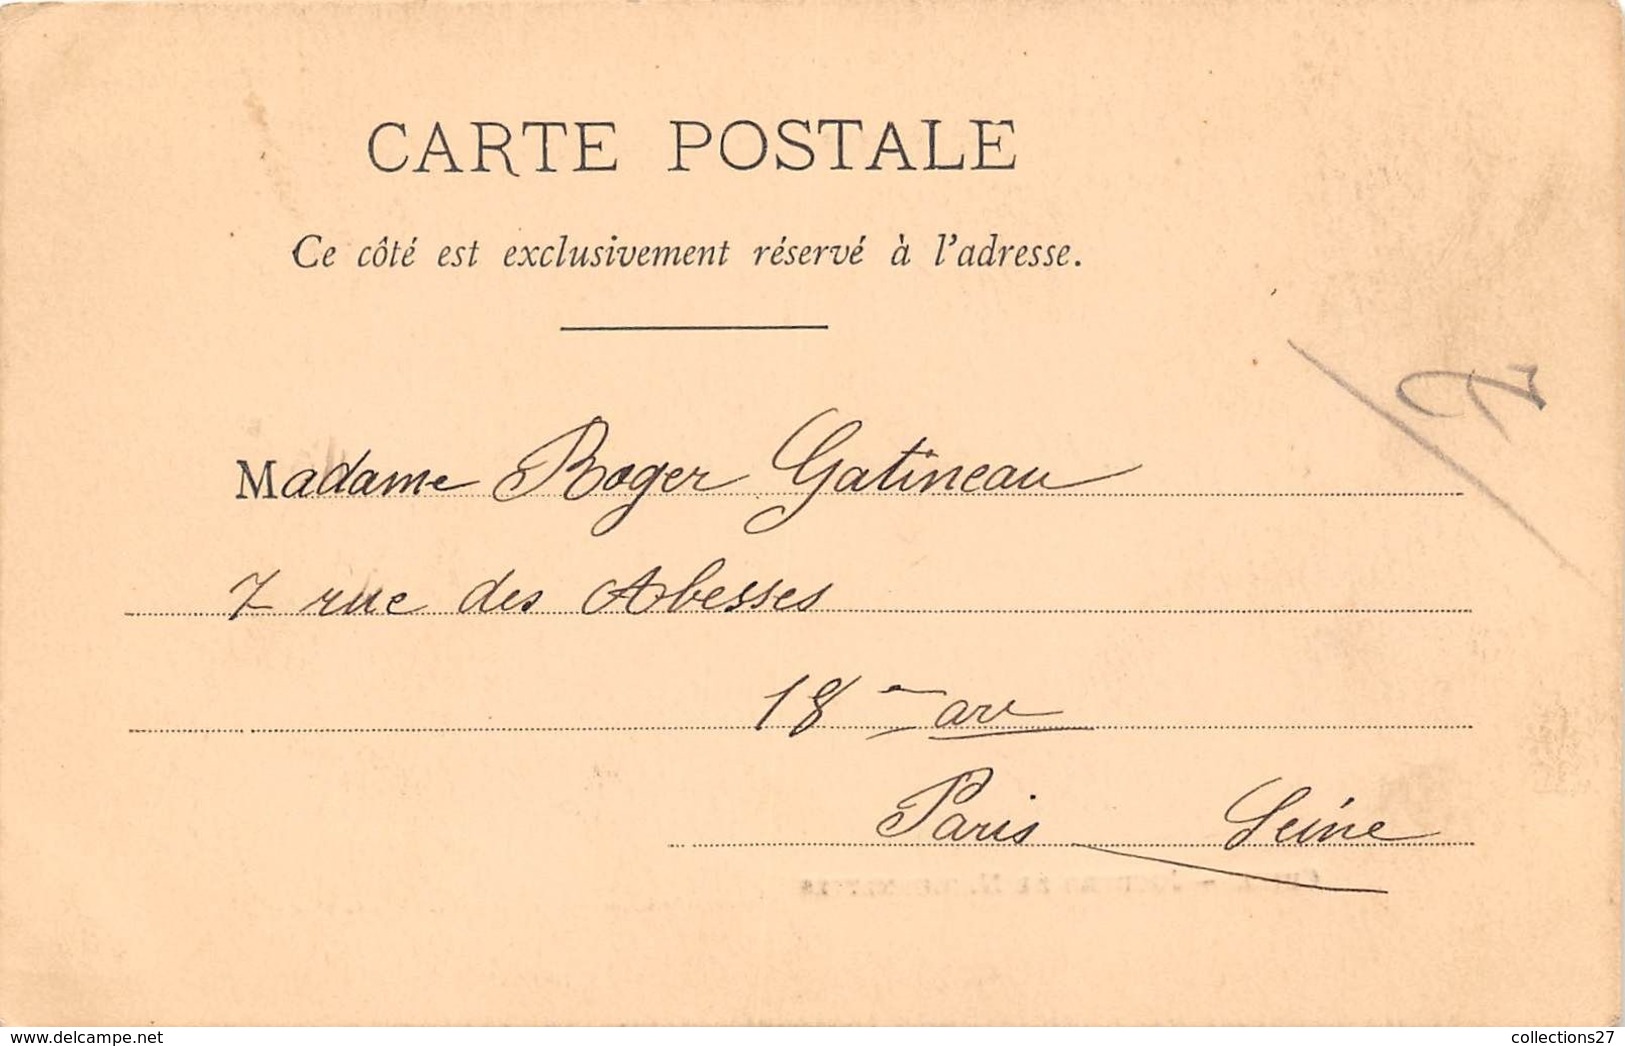 CARTE POSTALE
Ce côté est exclusivement réservé à l'adresse.
Madame Roger Gatineau
7 rue des Abesses
18 arr
Paris Seine
www.delcampe.net
collections27